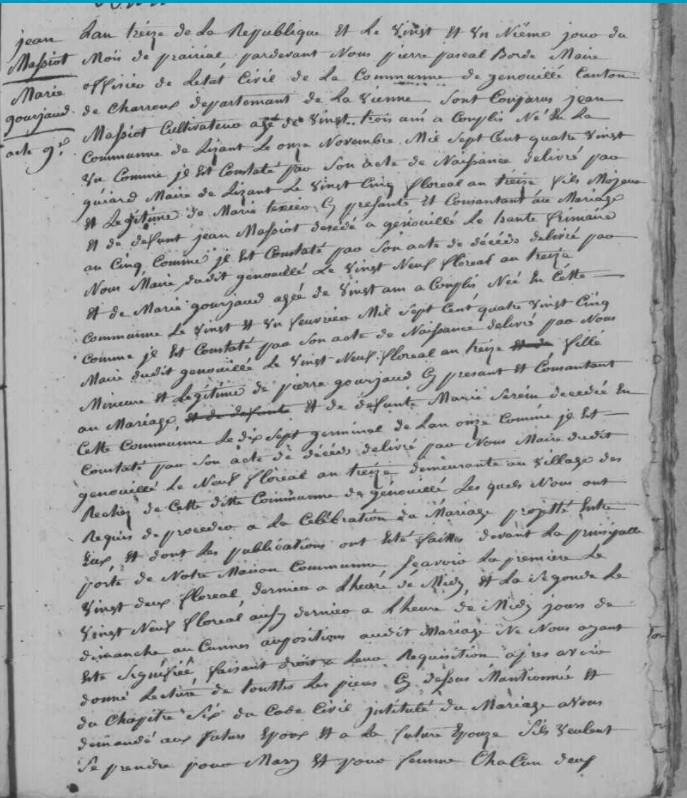 jean
Massiot
Marie
gourjaud
acte 9e
Lan treize de la Republique et le vinst et un nième jour du
Mois de prairial, pardevant Nous pierre pascal Borde Maire
officier de Letat Civil de la Communne de genouillé Canton
de Charroux departemant de la vienne, sont Comparus jean
Massiot Cultivateur agé de vinst trois ans a Complis Né En La
Communne de Lizant Le onze Novembre Mil Sept Cent quatre vinst
un Comme jl Est Constaté par Son acte de Naissance delivré par
guiard Maire de Lizant Le vinst Cinq floreal an treize fils Majeur
et Legitime de Marie texier Cy presante et Consantant au Mariage
et de defunt jean Massiot decedé a genouillé Le trante frimaire
an Cinq Comme jl Est Constaté par Son acte de décéds delivré par
Nous Maire dudit genouillé Le vinst Neuf floreal an treize
et de Marie gourjaud agée de vinst ans a Complis Née En Cette
Communne Le vinst et un fevrier Mil Sept Cent quatre vinst Cinq
Comme jl Est Constaté par Son acte de Naissance delivré par Nous
Maire dudit genouillé Le vinst Neuf floreal an treize fille
Mineure et Legitime de pierre gourjaud Cy presant et Consantant
au Mariage et de defunte et de defunte Marie Serein decedée En
Cette Communne Le dix Sept germinal de Lan onze Comme jl Est
Constaté par Son acte de décéds delivré par Nous Maire dudit
genouillé Le Neuf floreal an treize demeurante au village des
de Cette ditte Communne de genouillé Les quels Nous ont
Requis de proceder a La Celebration du Mariage projetté Entre
Eux, et dont Les publications ont Eté faittes devant La prinsipalle
porte de Notre Maison Communne Scavoir La premiere Le
vinst deux floreal dernier a Lheure de Midy et La Segonde Le
vinst Neuf floreal aussy dernier a Lheure de Midy jours de
dimanche aucunnes auposition audit Mariage Ne Nous ayant
Eté Signifiée, faisant droit a Leur Requisition, apres avoir
donné Lecture de touttes Les pieces Cy dessus Mantionnée et
du Chapitre Six du Code Civil jntitulé du Mariage avons
demandé aux futur Epoux et a La future Epouze Sils veulent
Se prendre pour Mary et pour femme Chacun deux